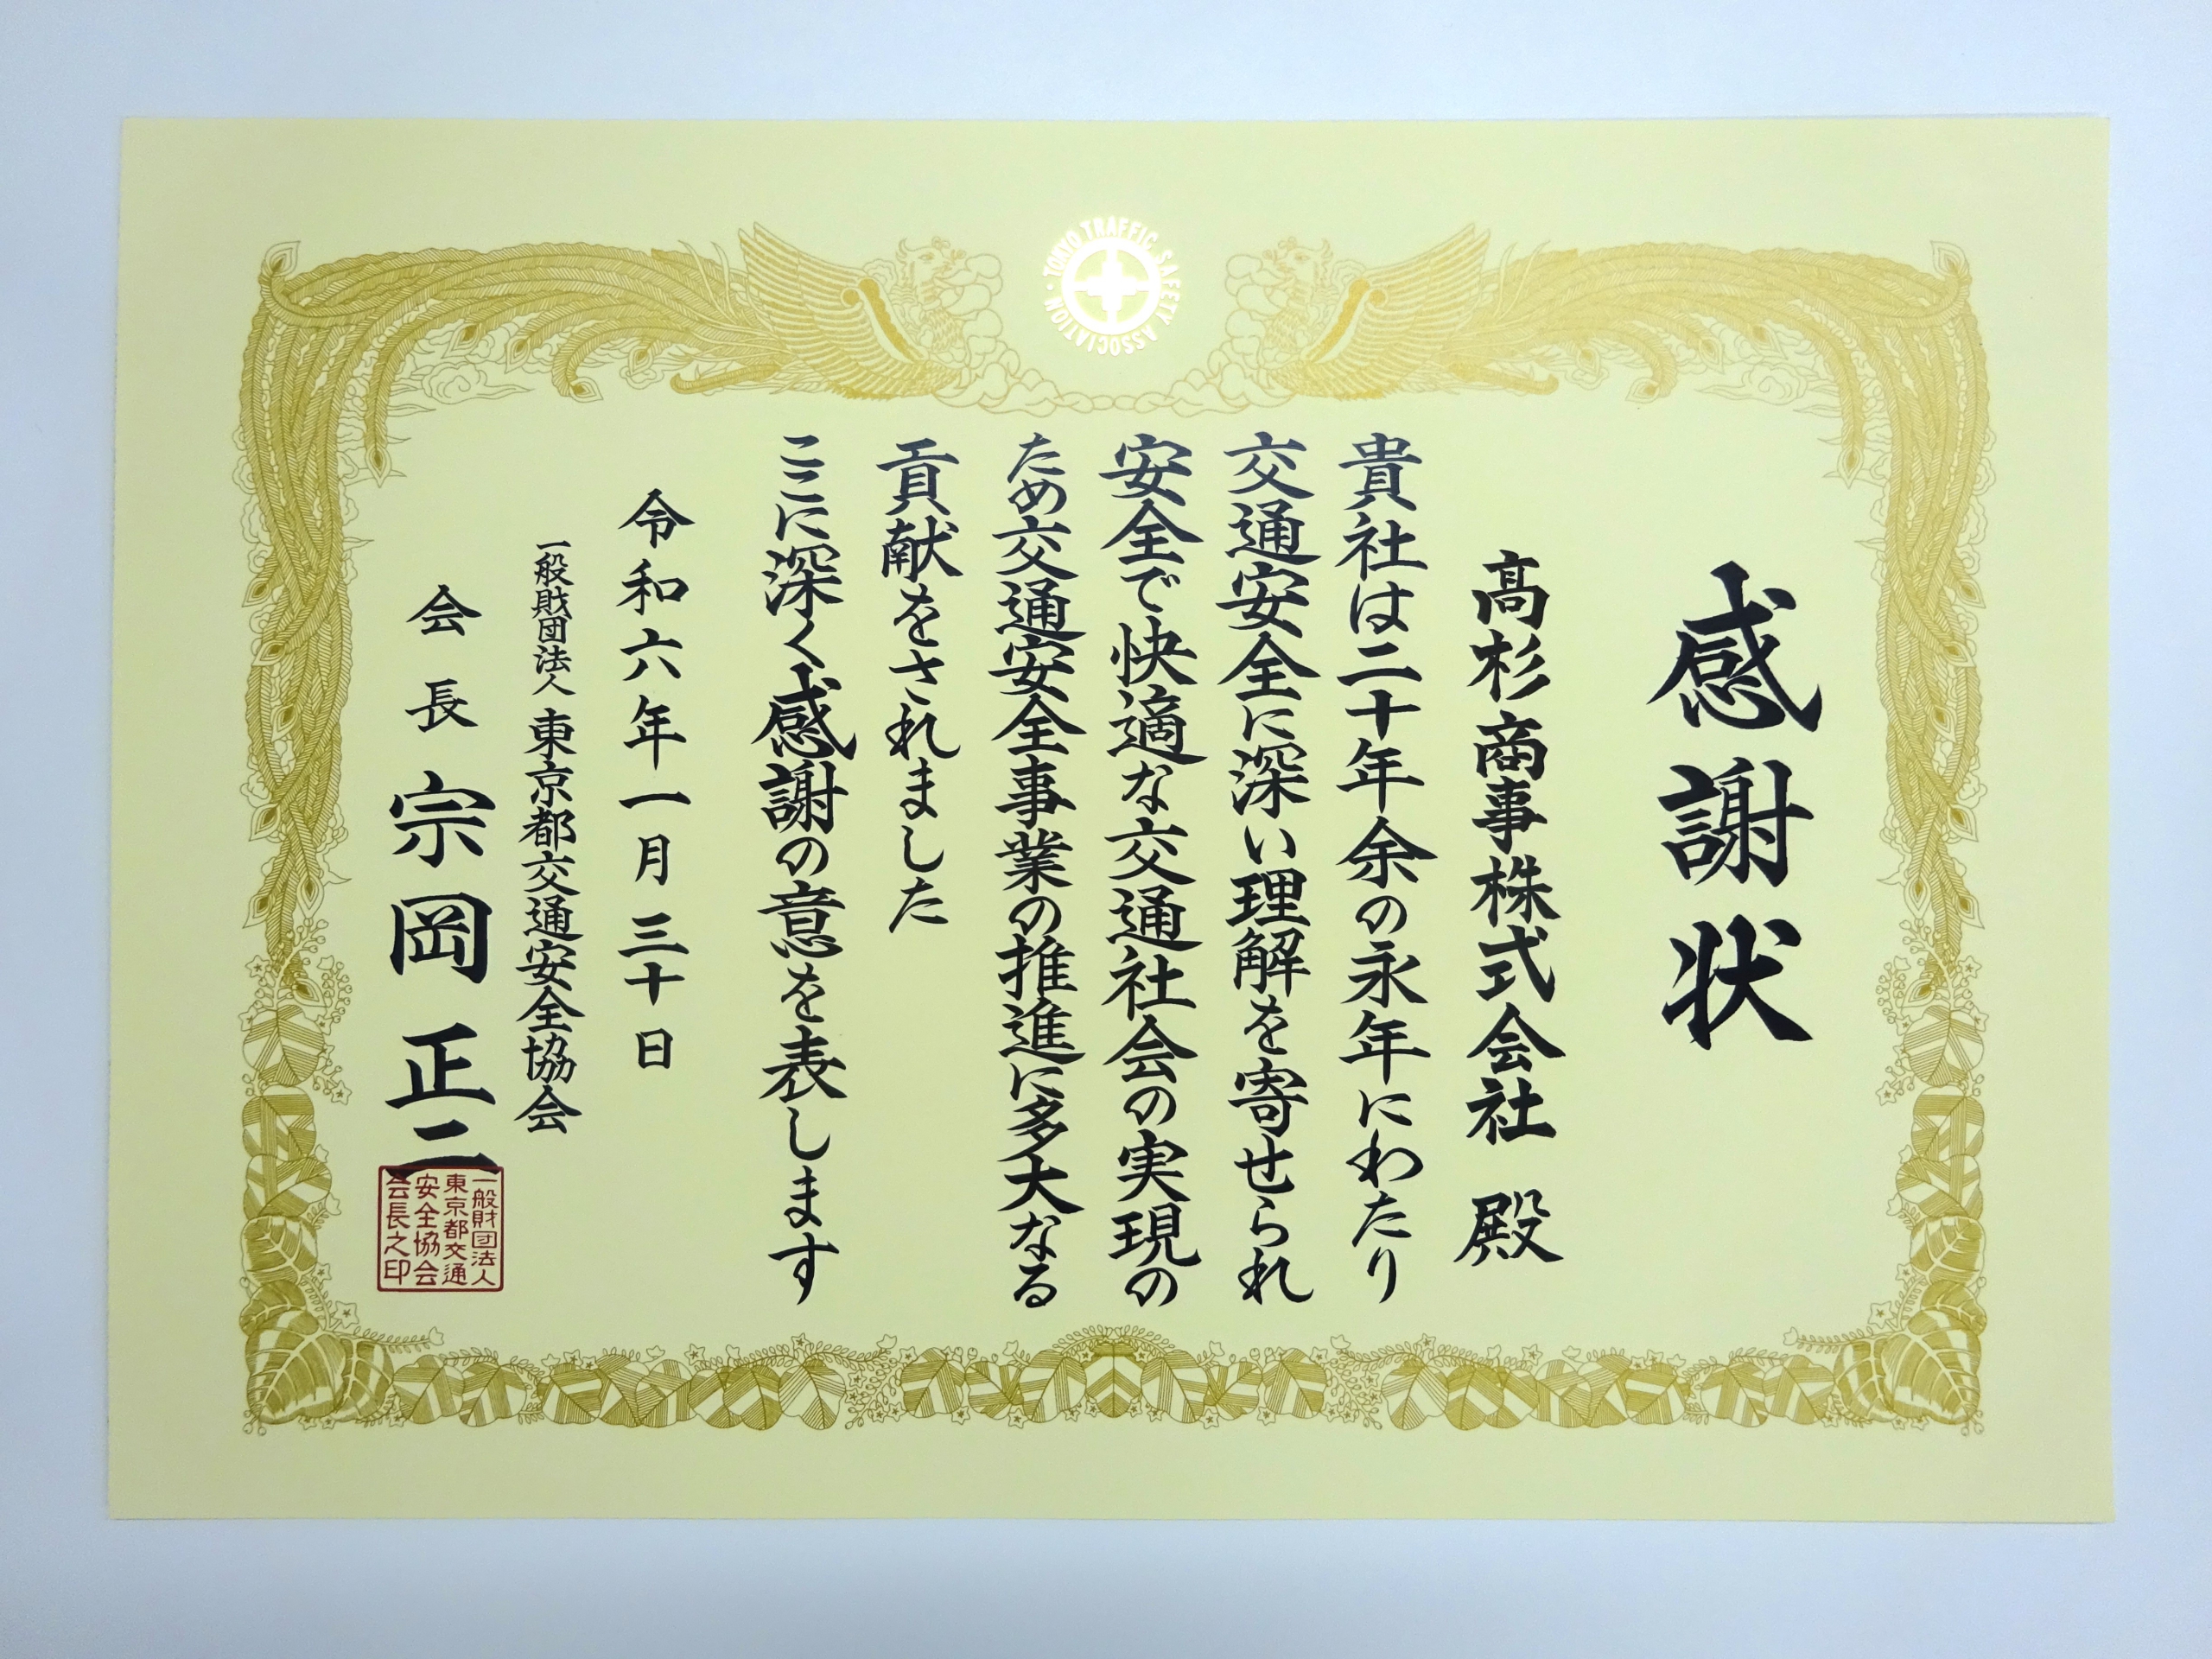 TOKYO TRAFFIC SAFETY ASSOCIATION
感謝状
髙杉商事株式会社 殿
貴社は二十年余の永年にわたり
交通安全に深い理解を寄せられ
安全で快適な交通社会の実現の
ため交通安全事業の推進に多大なる
貢献をされました
ここに深く感謝の意を表します
令和六年一月三十日
一般財団法人 東京都交通安全協会
会長 宗岡正二
一般財団法人
東京都交通
安全協会
会長之印